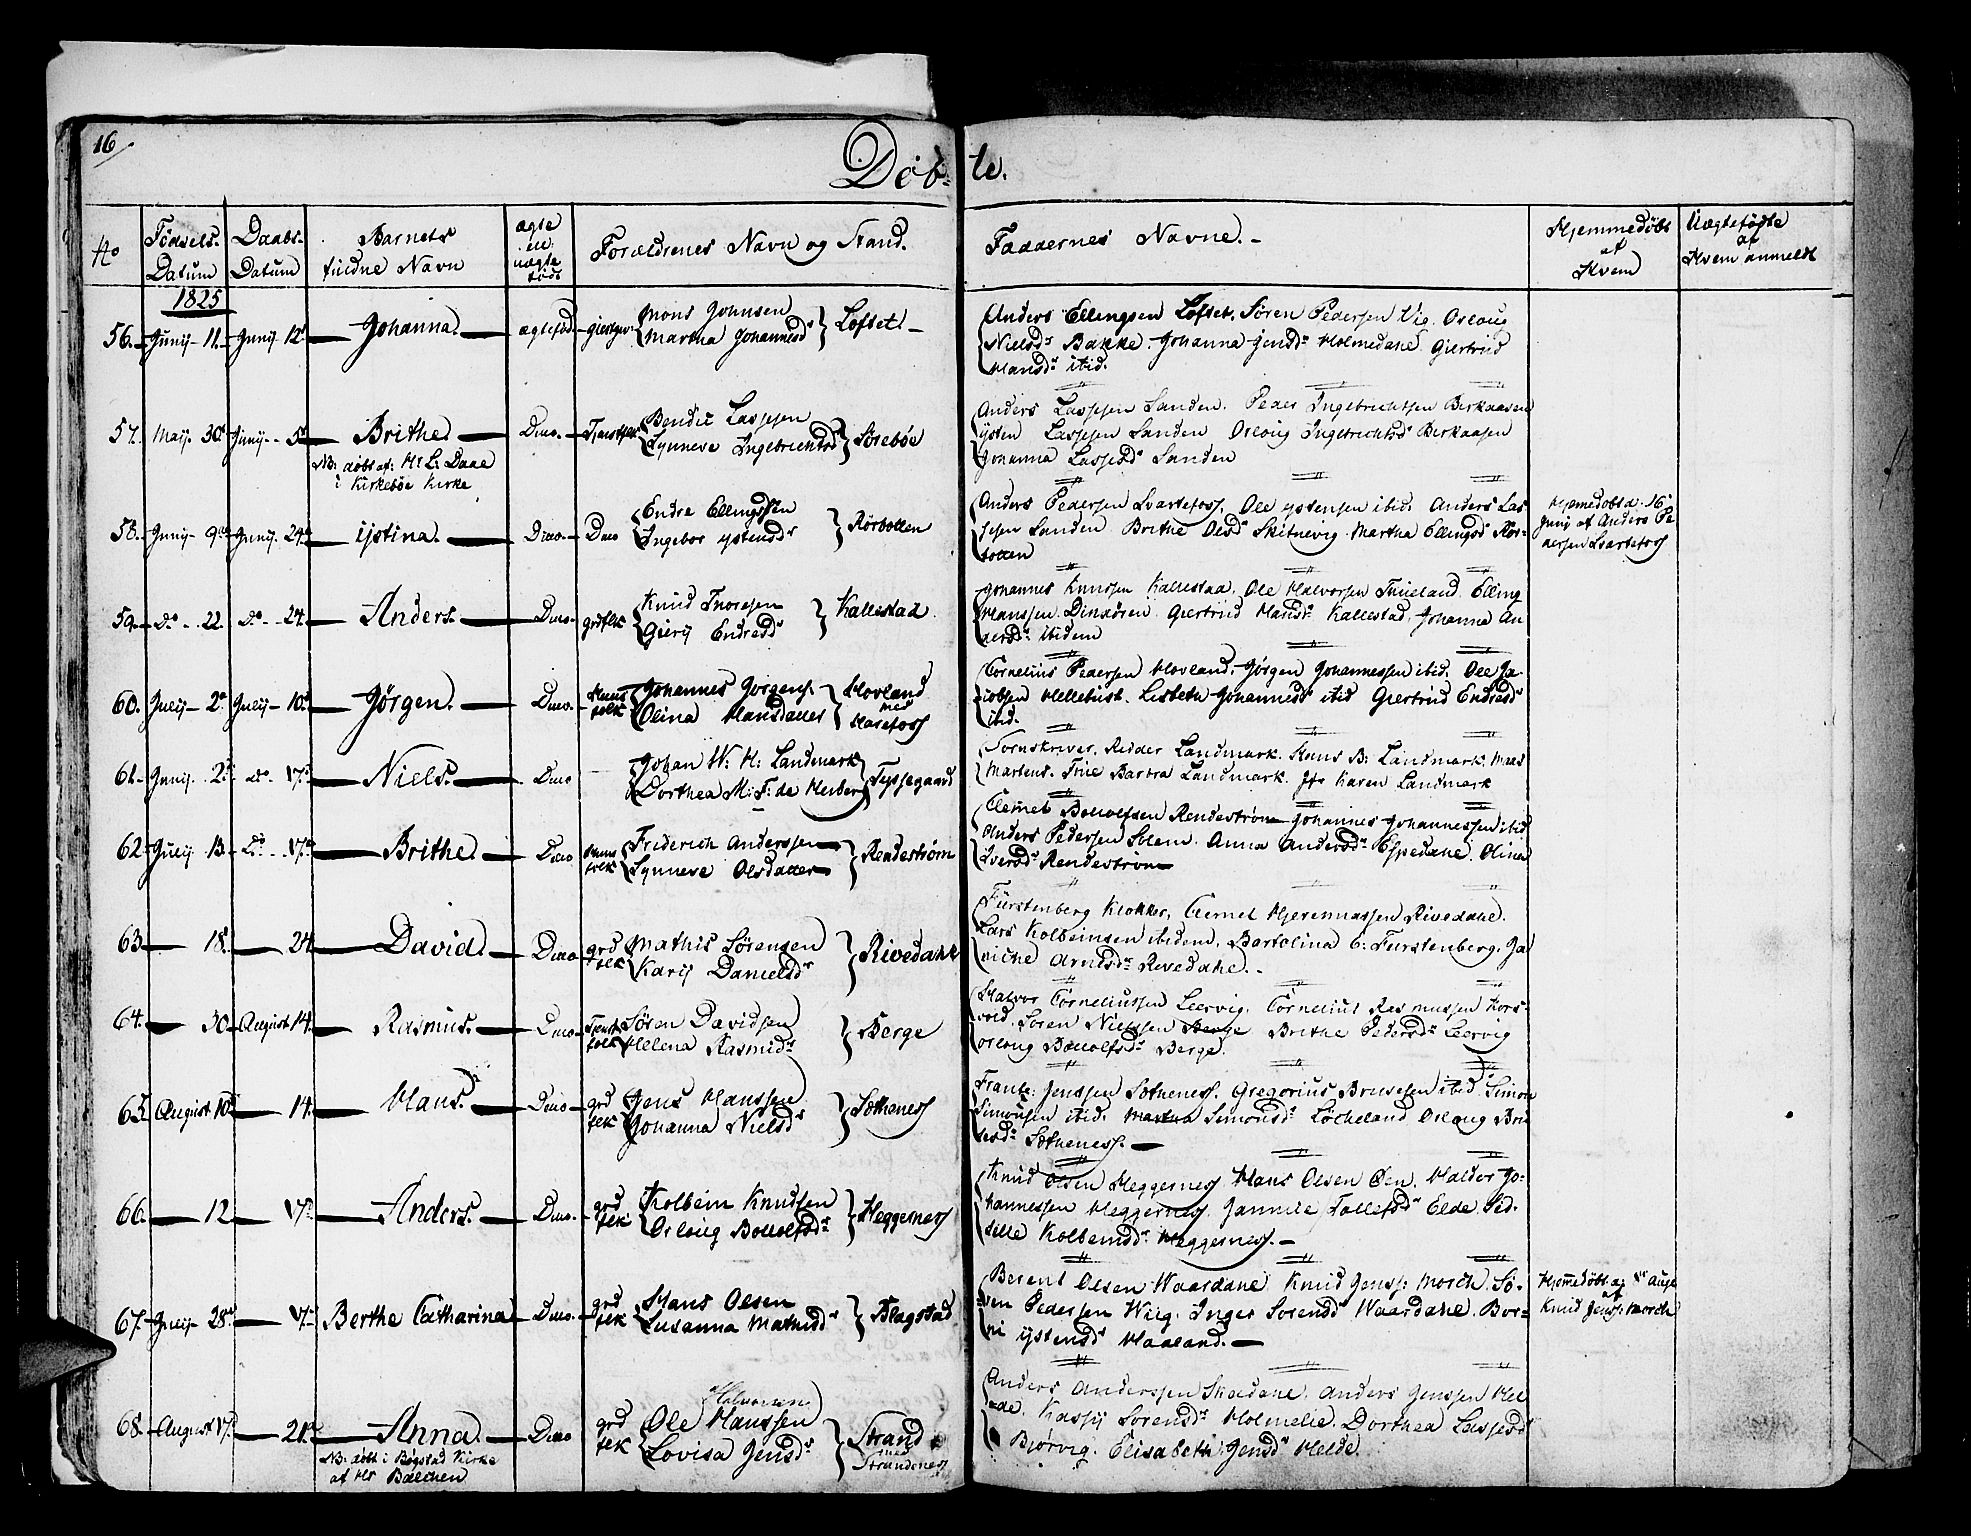 16
Døb- te.
No
Fødsels-
Datum
Daabs-
Datum
Barnets
fuldne Navn
ægte
el:
uægte
født
Forældrenes Navn og Stand.
Faddernes Navne.-
Hjemmedøbt
af
Hvem
Uægtefødte
af
Hvem anmeldt
1825
56. Junij 11. Junij 12t Johanna. ægtefød
Mons Johnsen
Martha Johannesd. Løfset.
Anders Ellingsen Løfset. Søren Pedersen Vig. Oslaug
Nielsdr Bakke. Johanna Jensdr Holmedahl. Giertrud
Hansdr ibid.
57. Maij 30t Junij 5t Brithe. Ditto Tjenstfolk
NB: døbt af: Hr L: Daae
i Kirkebøe Kirke
Bendic Lassesen
Synneve Ingebrichtsd. Sørebøe
Anders Lassesen Sanden. Peder Ingebrichtsen Birkaasen
ijsten Lassesen Sanden Oslaug Ingebrichtsdr Birkaasen
Johanna Lassesdr Sanden
58. Junij 9de Junij 24de ijstina. Ditto Ditto
Endre Ellingssen
Ingebor ijstensdr Rørbotten
Anders Pedersen Svartefoss, Ole ijstensen ibid. Anders Las
sesen Sanden Brithe Olsdr Skitnevig. Martha Ellingsdr Rør-
botten
Hjemmedøbt d: 16de
Junij af Anders Pe
dersen Svartefoss
59. Do 22. Do 24. Anders. Ditto grdfolk
Knud Thoresen
Gierij Endresdr Kallestad.
Johannes Knudsen Kallestad. Ole Halvorsen Thueland. Elling
Hanssen. Giertrud Hansdr. Kallestad. Johanna An
dersdr ibidem
60. Julij 2den Julij 10de Jørgen. Ditto Huusfolk
Johannes Jørgens.
Olina Hansdatter Hovland
Harefoss
Cornelius Pedersen Hovland. Jørgen Johannessen ibid. Ole Ja-
cobsen Hellebust. Lisbeth Johannesdr ibid Giertrud Endresdr
ibid.
61. Junij 2den Do 17de Niels. Ditto
Johan W: H: Landmark
Dorthea M: F: de Herberg Tyssegaard
Sornskriver, Ridder Landmark. Hans B: Landmark. Mad
Martens. Frue Barbra Landmark. Jfr Karen Landmark
62. Julij 13. Do 17de Brithe. Ditto Huusfolk
Friderich Anderssen
Synneve Olsdatter Rendestrøm
Clemet Botolfsen Rendestrøm Johannes Johannessen ibid
Anders Pedersen Solem. Anna Andersdr Espedahl. Olina
Iversdr Rendestrøm
63. 18. 24. David. Ditto grdfolk
Mathis Sørensen
Karij Danielsdr Rivedahl
Fürstenberg Klokker, Clemet Rivedahl.
Lars Kolbeinsen ibidem. Bartolina C: Fürstenberg, Ja
niche Arnesdr Rivedahl.-
64. 30. August 14. Rasmus. Ditto Tjenstfolk
Søren Davidsen
Helena Rasmusdr Berge
Halvor Corneliussen Leervig. Cornelius Rasmussen Kors-
vold. Søren Nielssen Berge Brithe Pedersdr Leervig
Oslaug Botolfsdr Berge.
65. August 10de 14. Hans. Ditto grdfolk
Jens Hanssen
Johanna Nielsdr Sothenes
Frants: Jenssen Sothenes. Gregorius Brusesen ibid Simon
Simonsen ibid. Martha Simonsdr Løcheland Oslaug Bru
sesdr Sothenes.
66. 12. 17de Anders. Ditto grdfolk
Kolbein Knudsen
Oslaug Botolfsdr Heggernes
Knud Olsen Heggernes Hans Olsen Øen. Haldor Jo-
hannessen Heggernes. Jannicke Tollefsdr Elde. Sid-
selle Kolbeinsdr Heggernes.-
67. Julij 28de 17de Berthe Catharina Ditto grdfolk
Hans Olsen
Susanna Mathisdr Flagstad
Berent Olsen Waardahl. Knud Jenss: Morch. Sø-
ren Pedersen Wiig. Inger Sørensdr Waardahl. Bor-
ni ijstensdr Haaland.
Hjemmedøbt
af
Knud Jenss: Morch
68. August 17. 21de Anna. Ditto grdfolk
NB: døbt i Bøgstad Kirke
af Hr Balchen
Halvorsen
Ole Hanssen
Lovisa Jensdr Strand
Strandenes
Anders Anderssen Skoedahl. Anders Jenssen Hel
de. Kasij Sørensdr Holmelie. Dorthea Lassesdr
Bjørvig. Elisabeth Jensdr Helde.